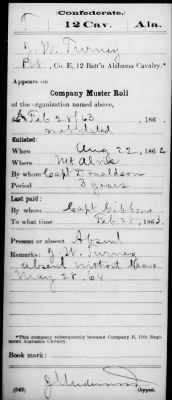 Confederate.
T
12 Cav.
Ala.
J. W. Turney
Pvt, Co. E, 12 Batt'n Alabama Cavalry.*
Appears on
Company Muster Roll
of the organization named above,
Feb 28/63, 186
not dated
Enlisted:
When Aug 22, 1862
Where Mt Alvis
By whom Capt Donaldson
Period 3 years
Last paid:
By whom Capt Gibbons
To what time Feb 28, 1863.
Present or absent Absent
Remarks: J. W. Turney
absent without leave
May 28, 64
*This company subsequently became Company E, 12th Regiment Alabama Cavalry.
Book mark:
(642)
Copyist.